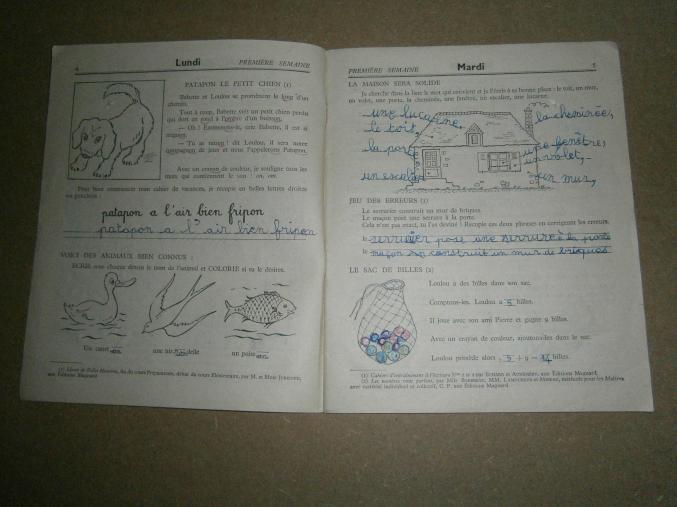 4 Lundi PREMIÈRE SEMAINE
PATAPON LE PETIT CHIEN (1)
Babette et Loulou se promènent le long d'un
chemin.
Tout à coup, Babette voit un petit chien perdu
qui dort en rond à l'ombre d'un buisson.
— Oh ! Emmenons-le, crie Babette, il est si
mignon.
— Tu as raison ! dit Loulou, il sera notre
compagnon de jeux et nous l'appellerons Patapon.
Avec un crayon de couleur, je souligne tous les
mots qui contiennent le son : on, om.
Pour bien commencer mon cahier de vacances, je recopie en belles lettres droites
ou penchées :
patapon a l'air bien fripon
patapon a l'air bien fripon
VOICI DES ANIMAUX BIEN CONNUS :
ECRIS sous chaque dessin le nom de l'animal et COLORIE si tu le désires.
Un canard
une hirondelle
un poisson
(1) Livre de Belles Histoires, fin du cours Préparatoire, début du cours Elémentaire, par M. et Mme
aux Editions Magnard.
PREMIÈRE SEMAINE Mardi 5
LA MAISON SERA SOLIDE
Je cherche dans la liste le mot qui convient et je l'écris à sa bonne place : le toit, un mur,
un volet, une porte, la cheminée, une fenêtre, un escalier, une lucarne.
une lucarne,
la cheminée,
le toit,
la porte
une fenêtre,
un volet,
un escalier
un mur,
JEU DES ERREURS (1)
Le serrurier construit un mur de briques.
Le maçon pose une serrure à la porte.
Cela n'est pas exact, tu l'as deviné ! Recopie ces deux phrases en corrigeant les erreurs.
le serrurier pose une serrure à la porte
le maçon construit un mur de briques
LE SAC DE BILLES (2)
Loulou a des billes dans son sac.
Comptons-les. Loulou a 5 billes.
Il joue avec son ami Pierre et gagne 9 billes.
Avec un crayon de couleur, ajoutons-les dans le sac.
Loulou possède alors : 5 + 9 = 14 billes.
(1) Cahiers d'entraînement à l'écriture
aux Editions Magnard.
(2) Les nombres
méthode pour les Maîtres,
avec matériel individuel et collectif, C. P. aux Editions Magnard.